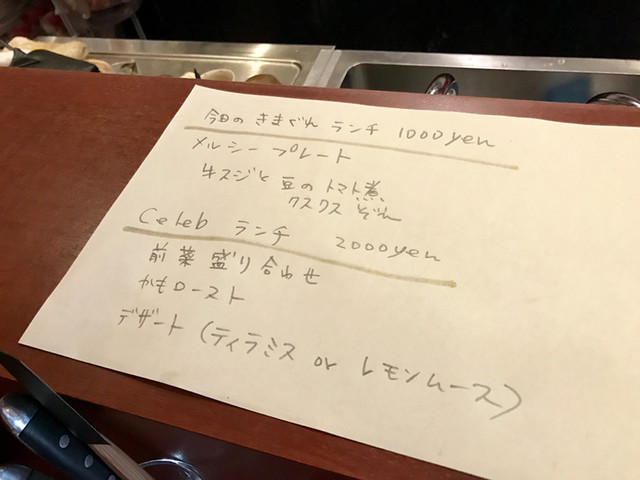 今日の きまぐれ ランチ 1000yen
メルシープレート
牛スジと 豆の トマト煮
クスクス ぞえ
Celeb ランチ 2000yen
前菜盛り合わせ
かもロースト
デザート (ティラミス or レモンムース)